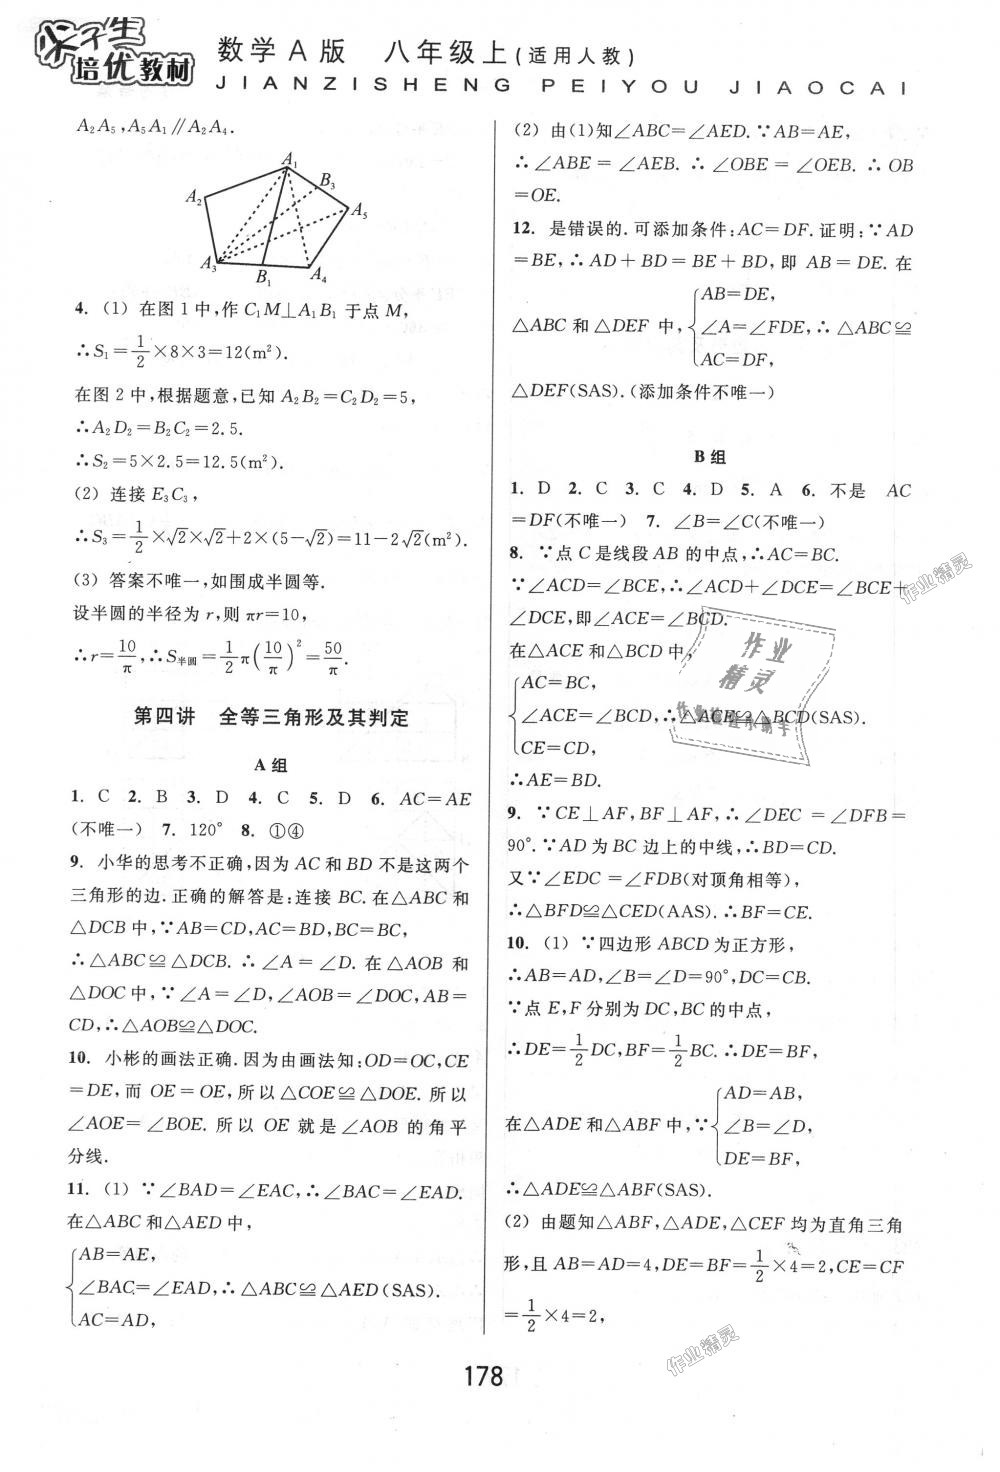 尖子生
培优教材
数学A版 八年级上(适用人教)
JIANZISHENG PEIYOU JIAOCAI
A₂A₅,A₅A₁∥A₂A₄.
A₁
B₃
A₂
A₅
A₃
B₁
A₄
4. (1) 在图1中,作C₁M⊥A₁B₁于点M,
∴S₁=1/2×8×3=12(m²).
在图2中,根据题意,已知A₂B₂=C₂D₂=5,
∴A₂D₂=B₂C₂=2.5.
∴S₂=5×2.5=12.5(m²).
(2) 连接E₃C₃,
∴S₃=1/2×√2×√2+2×(5-√2)=11-2√2(m²).
(3) 答案不唯一,如围成半圆等.
设半圆的半径为r,则πr=10,
∴r=10/π,∴S半圆=1/2π(10/π)²=50/π.
第四讲 全等三角形及其判定
A组
1. C 2. B 3. D 4. C 5. D 6. AC=AE
(不唯一) 7. 120° 8. ①④
9. 小华的思考不正确,因为AC和BD不是这两个
三角形的边.正确的解答是:连接BC.在△ABC和
△DCB中,∵AB=CD,AC=BD,BC=BC,
∴△ABC≌△DCB.∴∠A=∠D.在△AOB和
△DOC中,∵∠A=∠D,∠AOB=∠DOC,AB=
CD,∴△AOB≌△DOC.
10. 小彬的画法正确.因为由画法知:OD=OC,CE
=DE,而OE=OE,所以△COE≌△DOE.所以
∠AOE=∠BOE.所以OE就是∠AOB的角平
分线.
11. (1) ∵∠BAD=∠EAC,∴∠BAC=∠EAD.
在△ABC和△AED中,
AB=AE,
∠BAC=∠EAD,∴△ABC≌△AED(SAS).
AC=AD,
(2) 由(1)知∠ABC=∠AED.∵AB=AE,
∴∠ABE=∠AEB.∴∠OBE=∠OEB.∴OB
=OE.
12. 是错误的.可添加条件:AC=DF.证明:∵AD
=BE,∴AD+BD=BE+BD,即AB=DE.在
AB=DE,
△ABC和△DEF中,{∠A=∠FDE,∴△ABC≌
AC=DF,
△DEF(SAS).(添加条件不唯一)
B组
1. D 2. C 3. C 4. D 5. A 6. 不是 AC
=DF(不唯一) 7. ∠B=∠C(不唯一)
8. ∵点C是线段AB的中点,∴AC=BC.
∵∠ACD=∠BCE,∴∠ACD+∠DCE=∠BCE+
∠DCE,即∠ACE=∠BCD.
在△ACE和△BCD中,
AC=BC,
∠ACE=∠BCD,∴△ACE≌△BCD(SAS).
CE=CD,
∴AE=BD.
9. ∵CE⊥AF,BF⊥AF,∴∠DEC=∠DFB=
90°.∵AD为BC边上的中线,∴BD=CD.
又∵∠EDC=∠FDB(对顶角相等),
∴△BFD≌△CED(AAS).∴BF=CE.
10. (1) ∵四边形ABCD为正方形,
∴AB=AD,∠B=∠D=90°,DC=CB.
∵点E,F分别为DC,BC的中点,
∴DE=1/2DC,BF=1/2BC.∴DE=BF,
AD=AB,
在△ADE和△ABF中,∵{∠B=∠D,
DE=BF,
∴△ADE≌△ABF(SAS).
(2) 由题知△ABF,△ADE,△CEF均为直角三角
形,且AB=AD=4,DE=BF=1/2×4=2,CE=CF
=1/2×4=2,
作业精灵
作业
精灵
作业精灵
178